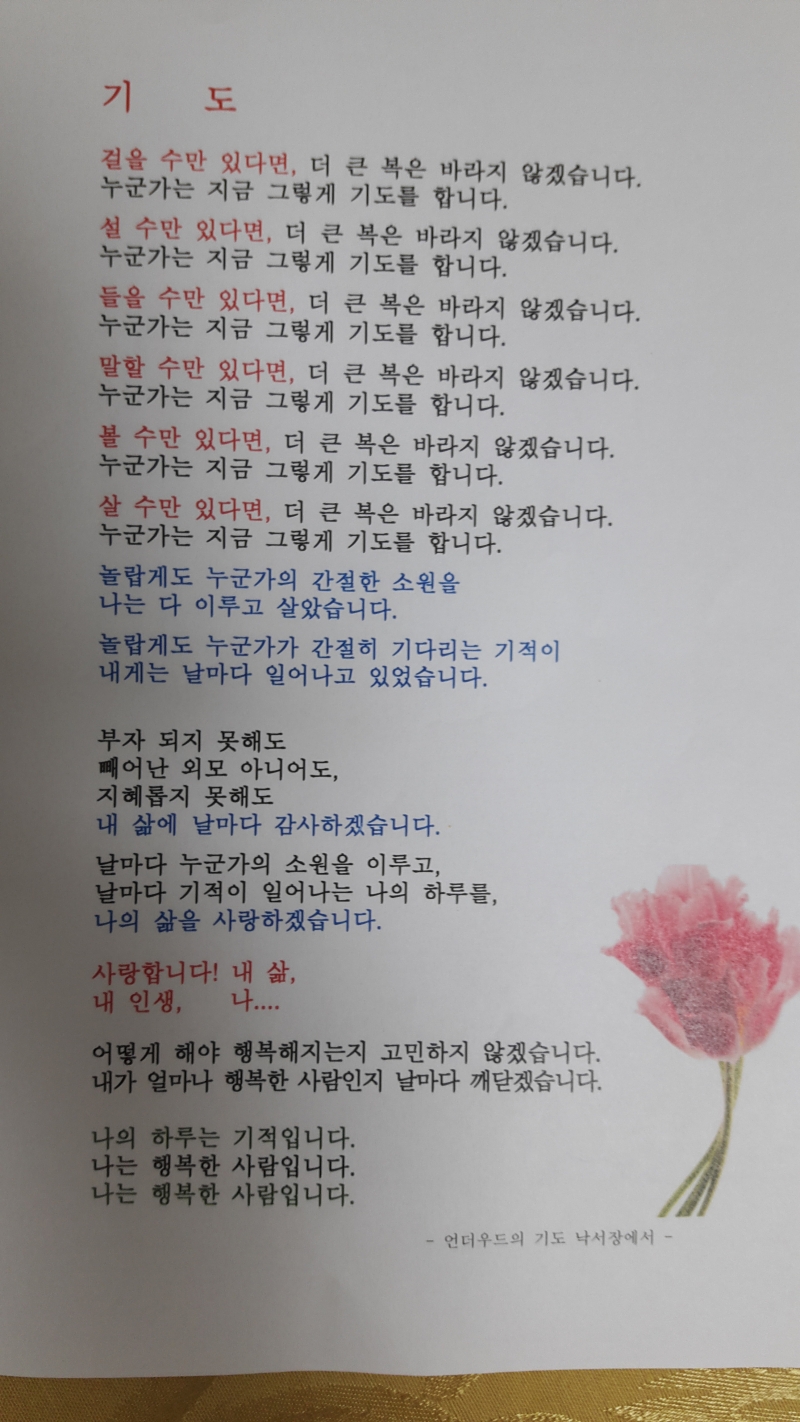 기 도
걸을 수만 있다면, 더 큰 복은 바라지 않겠습니다.
누군가는 지금 그렇게 기도를 합니다.
설 수만 있다면, 더 큰 복은 바라지 않겠습니다.
누군가는 지금 그렇게 기도를 합니다.
들을 수만 있다면, 더 큰 복은 바라지 않겠습니다.
누군가는 지금 그렇게 기도를 합니다.
말할 수만 있다면, 더 큰 복은 바라지 않겠습니다.
누군가는 지금 그렇게 기도를 합니다.
볼 수만 있다면, 더 큰 복은 바라지 않겠습니다.
누군가는 지금 그렇게 기도를 합니다.
살 수만 있다면, 더 큰 복은 바라지 않겠습니다.
누군가는 지금 그렇게 기도를 합니다.
놀랍게도 누군가의 간절한 소원을
나는 다 이루고 살았습니다.
놀랍게도 누군가가 간절히 기다리는 기적이
내게는 날마다 일어나고 있었습니다.
부자 되지 못해도
빼어난 외모 아니어도,
지혜롭지 못해도
내 삶에 날마다 감사하겠습니다.
날마다 누군가의 소원을 이루고,
날마다 기적이 일어나는 나의 하루를,
나의 삶을 사랑하겠습니다.
사랑합니다! 내 삶,
내 인생, 나....
어떻게 해야 행복해지는지 고민하지 않겠습니다.
내가 얼마나 행복한 사람인지 날마다 깨닫겠습니다.
나의 하루는 기적입니다.
나는 행복한 사람입니다.
나는 행복한 사람입니다.
- 언더우드의 기도 낙서장에서 -